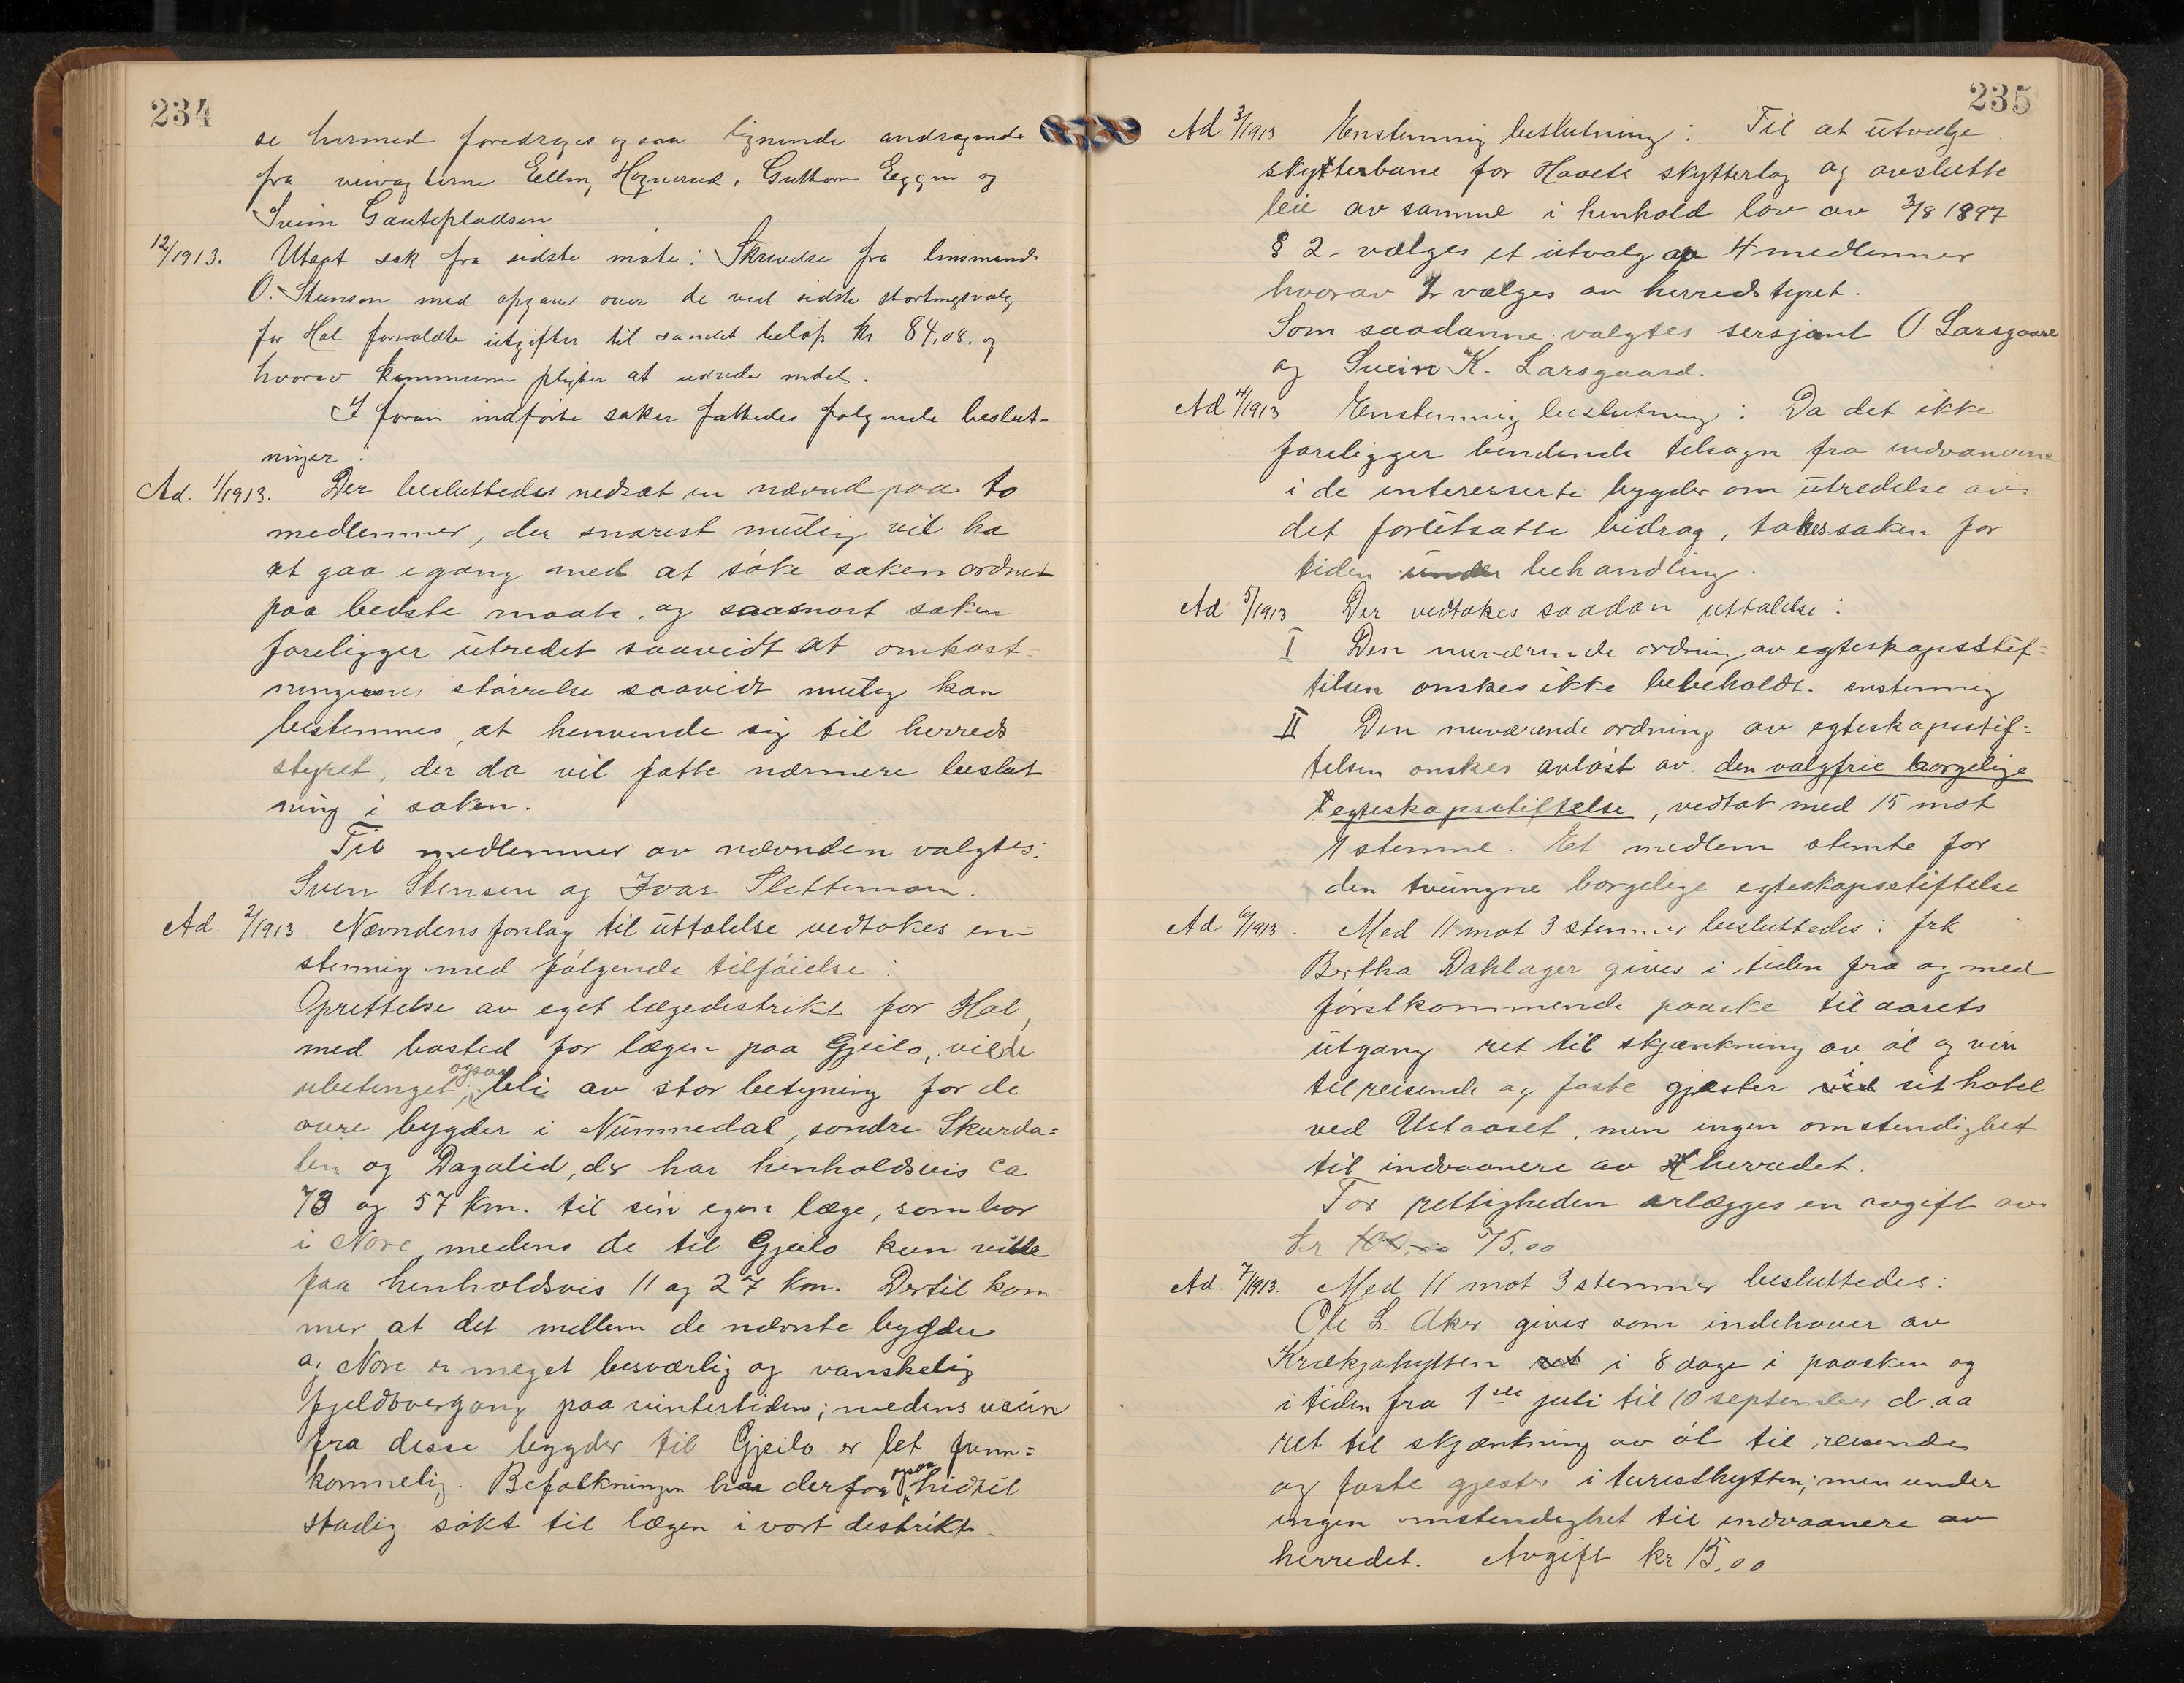 234
se hermed foredrages ogsaa lignende andragende
fra veivagterne Eellm, Hognerud, Guttorm Eggen og
Svein Gauteplassen
12/1913. Utsat sak fra sidste møte: Skrivelse fra lensmand
O. Stensen med opgave over de ved sidste stortingsvalg
for Hol forvoldte utgifter til samlet beløp kr. 84,08. og
hvorav kommunen pligter at utrede endel.
I foran indførte saker fattedes følgende beslut-
ninger:
Ad. 1/1913. Der besluttedes nedsat en nævnd paa to
medlemmer, der snarest mulig vil ha
at gaa igang med at søke saken ordnet
paa bedste maate, og saasnart saken
foreligger utredet saavidt at omkost-
ningernes størrelse saavidt mulig kan
bestemmes, at henvende sig til herreds
styret, der da vil fatte nærmere beslut
ning i saken.
Til medlemmer av nævnden valgtes:
Sven Stensen og Ivar Slettemoen.
Ad. 2/1913 Nævndens forslag til uttalelse vedtokes en-
stemmig med følgende tilføielse:
Oprettelse av eget lægedistrikt for Hol,
med bosted for lægen paa Gjeilo, vilde
ubetinget ogsaa bli av stor betyning for de
øvre bygder i Nummedal, søndre Skurda-
len og Dagalid, der har henholdsvis ca
73 og 57 km. til sin egen læge, som bor
i Nore, medens de til Gjeilo kun vilde
faa henholdsvis 11 og 27 km. Dertil kom
mer at det mellem de nævnte bygder
og Nore er meget besværlig og vanskelig
fjeldovergang paa vintertiden; medens veien
fra disse bygder til Gjeilo er let frem-
kommelig. Befolkningen har derfor ogsaa hidtil
stadig søkt til lægen i vort distrikt.
235
Ad 3/1913 Enstemmig beslutning: Til at utvælge
skytterbane for Haaets skytterlag og avslutte
leie av samme i henhold lov av 3/8 1897
§ 2 - vælges et utvalg av 4 medlemmer
hvorav 2 vælges av herredstyret.
Som saadanne valgtes sersjant O Larsgaard
og Svein K. Larsgaard.
Ad 4/1913 Enstemmig beslutning: Da det ikke
foreligger bindende tilsagn fra indvaanerne
i de interesserte bygder om utredelse av
det forutsatte bidrag, takes saken for
tiden under behandling.
Ad 5/1913 Der vedtokes saadan uttalelse:
I Den nuværende ordning av egteskapsstif-
telsen ønskes ikke bebeholdt. enstemmig
II Den nuværende ordning av egteskapsstif-
telsen ønskes avløst av den valgfrie borgelige
egteskapsstiftelse, vedtat med 15 mot
1 stemme. Et medlem stemte for
den tvungne borgelige egteskapsstiftelse
Ad 6/1913. Med 11 mot 3 stemmer besluttedes: frk
Bertha Dahlager gives i tiden fra og med
førstkommende paaske til aarets
utgang ret til skjænkning av øl og vin
til reisende og faste gjester ved i sit hotel
ved Ustaoset, men ingen omstendighet
til indvaanere av herredet.
For rettigheden erlægges en avgift av
kr 100.00 75.00
Ad. 7/1913. Med 11 mot 3 stemmer besluttedes:
Ole L. Aker gives som indehaver av
Krækjahytten ret i 8 dage i paasken og
i tiden fra 1ste juli til 10 september d.aa
ret til skjænkning av øl til reisende
og faste gjester i turisthytten; men under
ingen omstendighet til indvaanere av
herredet. Avgift kr 15.00